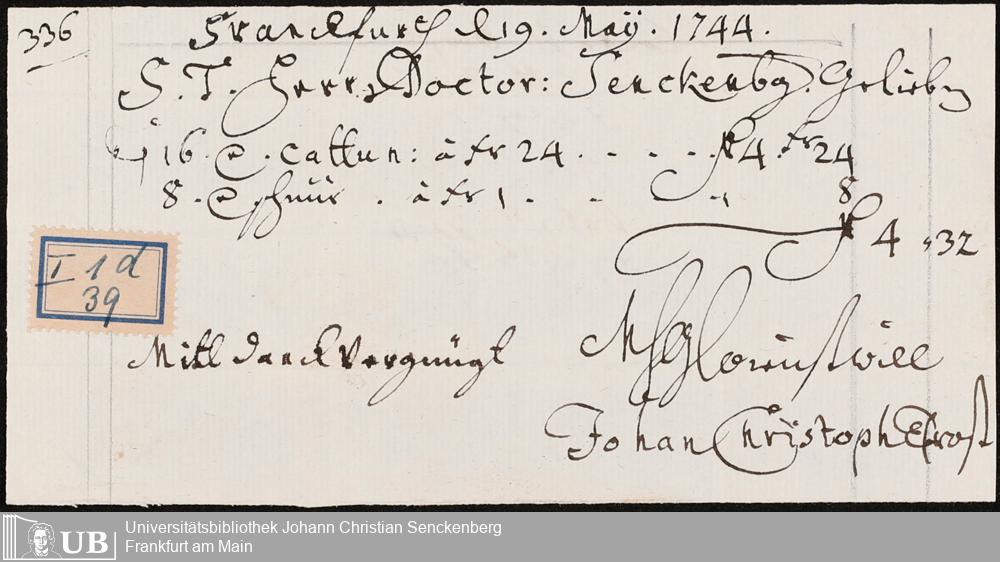 336
Franckfurth d 19. Maÿ. 1744.
S. T. Herr Doctor: Senckenbg. Geliebn
16. e. cattun: â Xr 24 . - - - . f 4 . Xr 24
8. e schnür . â Xr 1 . - . " 8
f 4 " 32
I 1 d
39
Mitt danck Vergnügt
Johan Christoph
Universitätsbibliothek Johann Christian Senckenberg
UB Frankfurt am Main